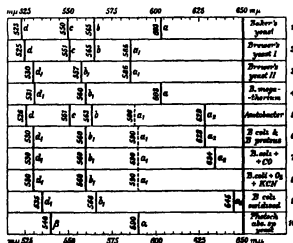 mμ 525 550 575 600 625 650 mμ
d c b a Baker's yeast
525 d 551 c 565 b 586 a₁ Brewer's yeast I
530 d₁ 557 b₁ 586 a₁ Brewer's yeast II
531 d₁ 560 b₁ 600 a B. mega-therium
d 551 c 563 b a₁ a₂ Azotobacter
530 d₁ 560 b₁ 590 a₁ 628 a₂ B. coli & B. proteus
530 d₁ 560 b₁ 590 a₁ a₂ B. coli + +CO
d₁ 560 b₁ 590 a₁ B. coli + O₂ + KCN
d₁ b₁ a₂ B. coli oxidized
540 β 590 α Photoch. abs. sp. yeast
mμ 525 550 575 600 625 650 mμ